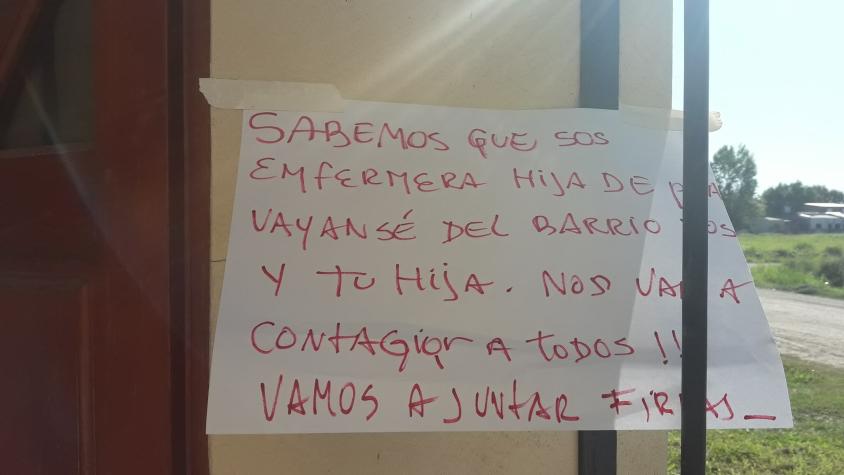 SABEMOS QUE SOS
EMFERMERA HIJA DE
VAYANSÉ DEL BARRIO
Y TU HIJA. NOS VAN A
CONTAGIAR A TODOS!!
VAMOS A JUNTAR FIRMAS_